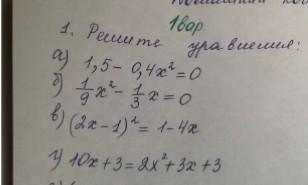 1вар.
1. Решите уравнения:
а) 1,5 - 0,4x² = 0
б) 1/9 x² - 1/3 x = 0
в) (2x - 1)² = 1 - 4x
г) 10x + 3 = 2x² + 3x + 3